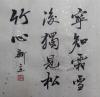 寧知霜雪
後獨見松
竹心